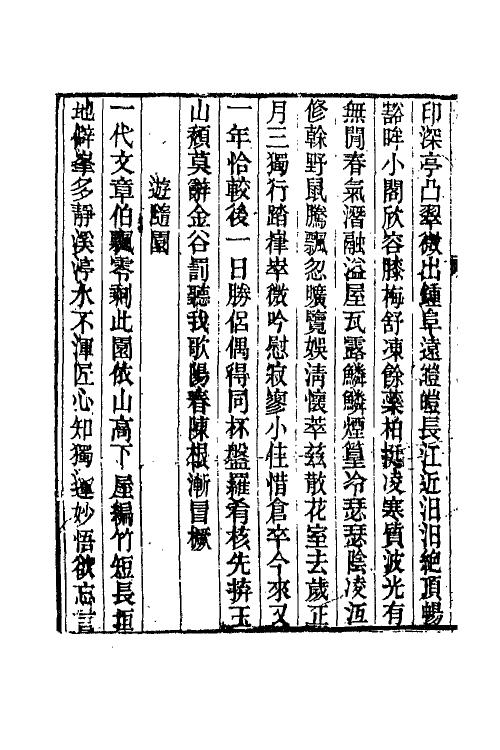 印深亭凸翠微出鍾阜遠皚皚長江近汩汩絶頂暢
豁眸小閣欣容膝梅舒凍餘蘂柏挺凌寒質波光有
無閒春氣潛融溢屋瓦露鱗鱗煙篁冷瑟瑟陰凌沍
修榦野鼠騰飄忽曠覽娛清懷萃兹散花室去歲正
月三獨行踏嵂崒微吟慰寂寥小住惜倉卒今來又
一年恰較後一日勝侶偶得同杯盤羅肴核先擠玉
山頹莫辭金谷罰聽我歌陽春陳根漸冒橛
遊隨園
一代文章伯飄零剩此園依山高下屋編竹短長垣
地僻峯多靜溪渟水不渾匠心知獨運妙悟欲忘言